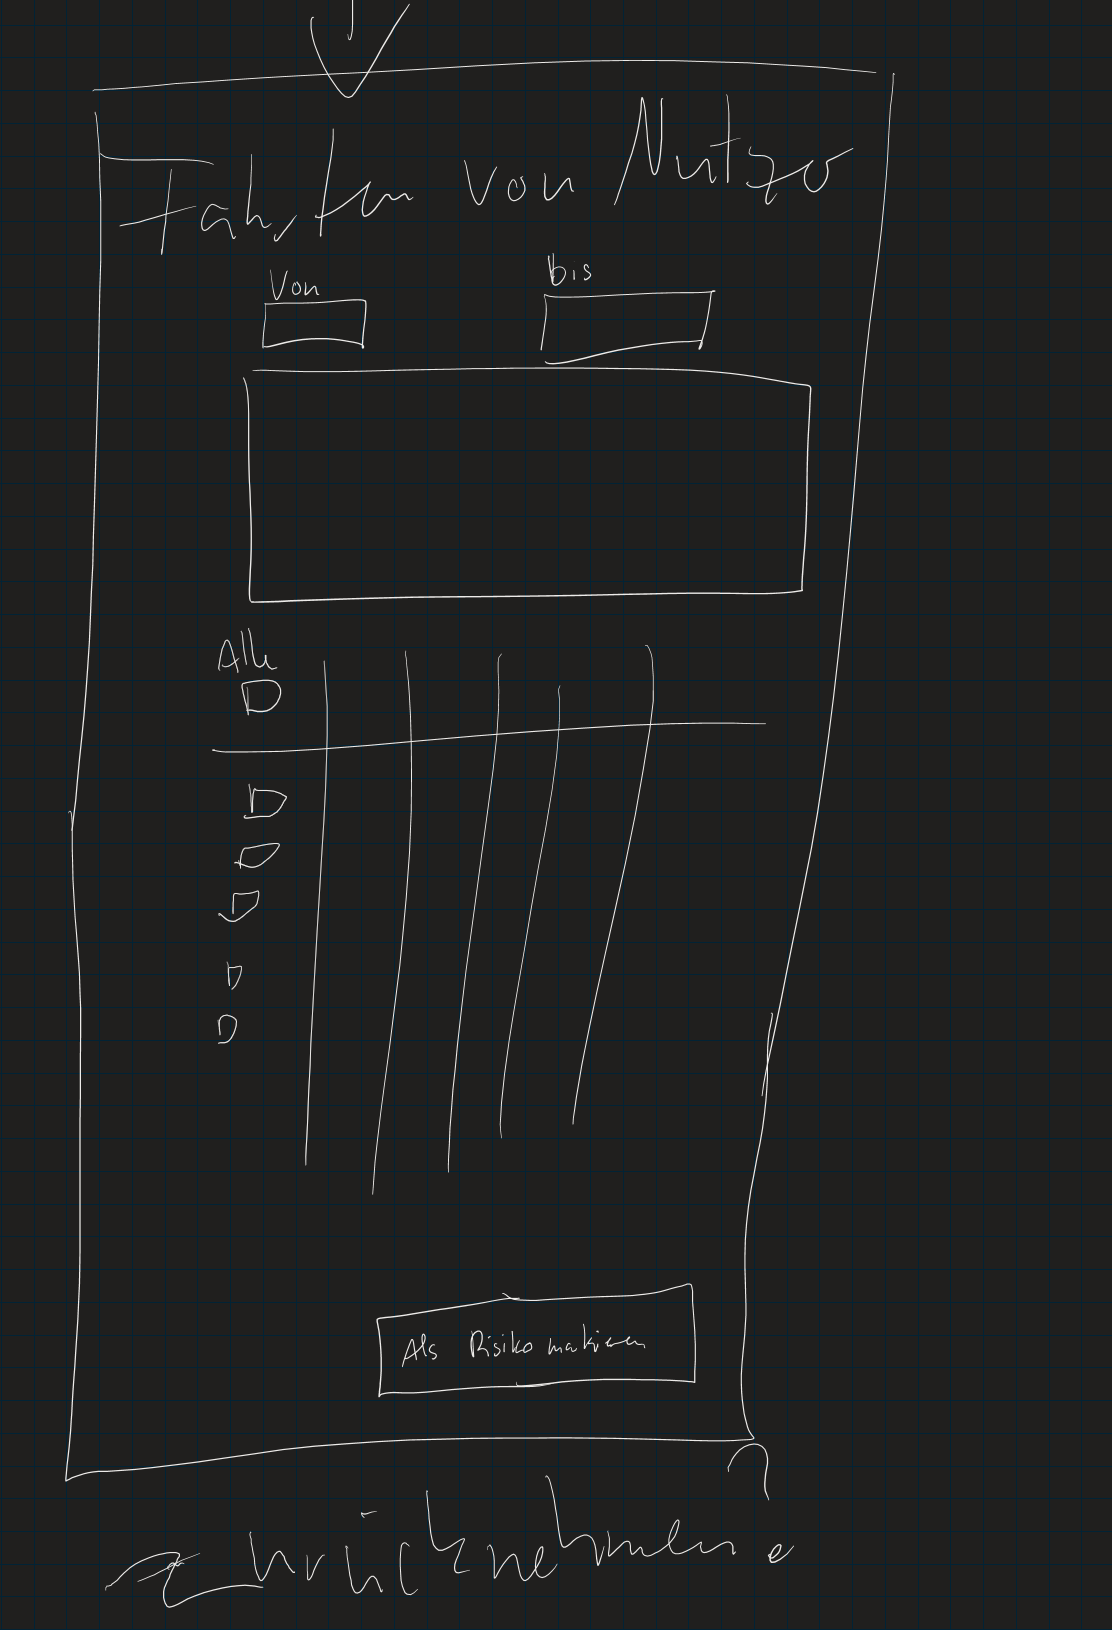 Fahrten von Nutzer
Von bis
Alle
Als Risiko makieren
zurücknehmen?